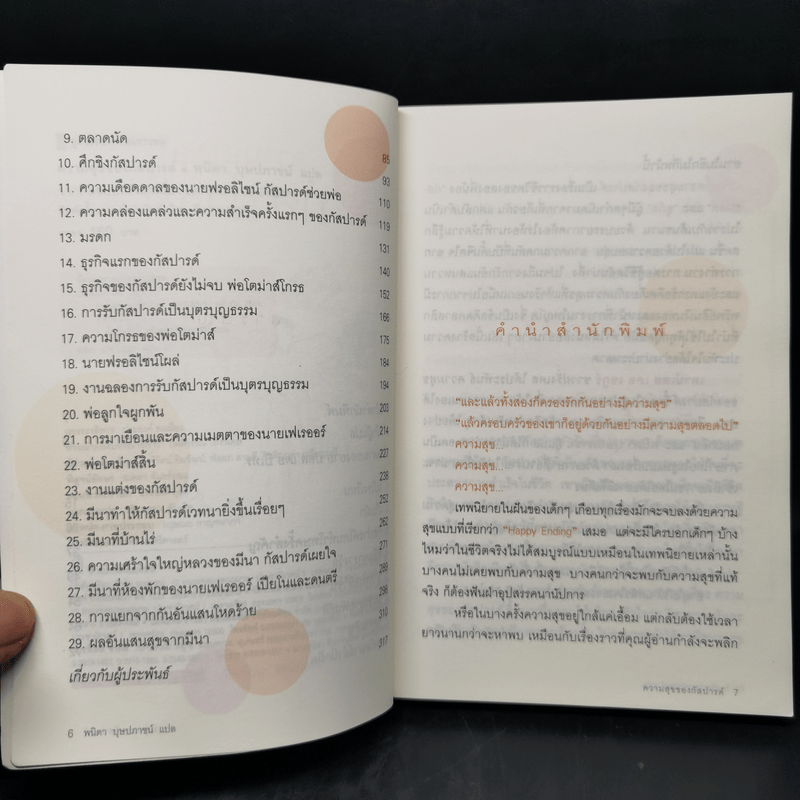 9. ตลาดนัด 85
10. ศึกชิงกัสปารด์ 93
11. ความเดือดดาลของนายฟรอลิไซน์ กัสปารด์ช่วยพ่อ 110
12. ความคล่องแคล่วและความสำเร็จครั้งแรกๆ ของกัสปารด์ 119
13. มรดก 131
14. ธุรกิจแรกของกัสปารด์ 140
15. ธุรกิจของกัสปารด์ยังไม่จบ พ่อโตม่าส์โกรธ 152
16. การรับกัสปารด์เป็นบุตรบุญธรรม 166
17. ความโกรธของพ่อโตม่าส์ 175
18. นายฟรอลิไซน์โผล่ 184
19. งานฉลองการรับกัสปารด์เป็นบุตรบุญธรรม 194
20. พ่อลูกใจผูกพัน 203
21. การมาเยือนและความเมตตาของนายเฟเรออร์ 214
22. พ่อโตม่าส์สิ้น 222
23. งานแต่งของกัสปารด์ 238
24. มีนาทำให้กัสปารด์เวทนายิ่งขึ้นเรื่อยๆ 252
25. มีนาที่บ้านไร่ 262
26. ความเศร้าใจใหญ่หลวงของมีนา กัสปารด์เผยใจ 271
27. มีนาที่ห้องพักของนายเฟเรออร์ เปียโนและดนตรี 289
28. การแยกจากกันอันแสนโหดร้าย 296
29. ผลอันแสนสุขจากมีนา 310
เกี่ยวกับผู้ประพันธ์ 317
6 พนิดา บุษปภาชน์ แปล
คำนำสำนักพิมพ์
"และแล้วทั้งสองก็ครองรักกันอย่างมีความสุข"
"แล้วครอบครัวของเขาก็อยู่ด้วยกันอย่างมีความสุขตลอดไป"
ความสุข...
ความสุข...
ความสุข...
เทพนิยายในฝันของเด็กๆ เกือบทุกเรื่องมักจะจบลงด้วยความ
สุขแบบที่เรียกว่า "Happy Ending" เสมอ แต่จะมีใครบอกเด็กๆ บ้าง
ไหมว่าในชีวิตจริงไม่ได้สมบูรณ์แบบเหมือนในเทพนิยายเหล่านั้น
บางคนไม่เคยพบกับความสุข บางคนกว่าจะพบกับความสุขที่แท้
จริง ก็ต้องฟันฝ่าอุปสรรคนานัปการ
หรือในบางครั้งความสุขอยู่ใกล้แค่เอื้อม แต่กลับต้องใช้เวลา
ยาวนานกว่าจะหาพบ เหมือนกับเรื่องราวที่คุณผู้อ่านกำลังจะพลิก
ความสุขของกัสปารด์ 7